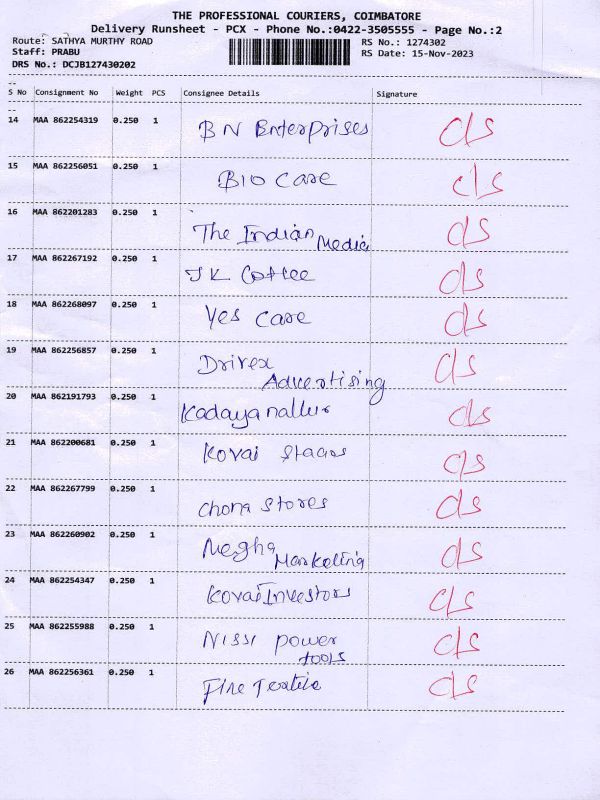 THE PROFESSIONAL COURIERS, COIMBATORE
Delivery Runsheet - PCX - Phone No.:0422-3505555 - Page No.:2
Route: SATHYA MURTHY ROAD RS No.: 1274302
Staff: PRABU RS Date: 15-Nov-2023
DRS No.: DCJB127430202
S No Consignment No Weight PCS Consignee Details Signature
14 MAA 862254319 0.250 1 BN Enterprises c/s
15 MAA 862256051 0.250 1 BIO Care c/s
16 MAA 862201283 0.250 1 The Indian Media c/s
17 MAA 862267192 0.250 1 JK Coffee c/s
18 MAA 862268097 0.250 1 Yes Care c/s
19 MAA 862256857 0.250 1 Drivex c/s
Advertising
20 MAA 862191793 0.250 1 Kadayanallur c/s
21 MAA 862200681 0.250 1 Kovai c/s
22 MAA 862267799 0.250 1 Stores c/s
23 MAA 862260902 0.250 1 Megha c/s
Marketing
24 MAA 862254347 0.250 1 Kovai Investors c/s
25 MAA 862255988 0.250 1 Nissi power c/s
tools
26 MAA 862256361 0.250 1 Fine Textile c/s